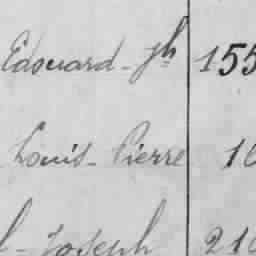 Edouard - Jh 155
Louis - Pierre 10
- Joseph 210